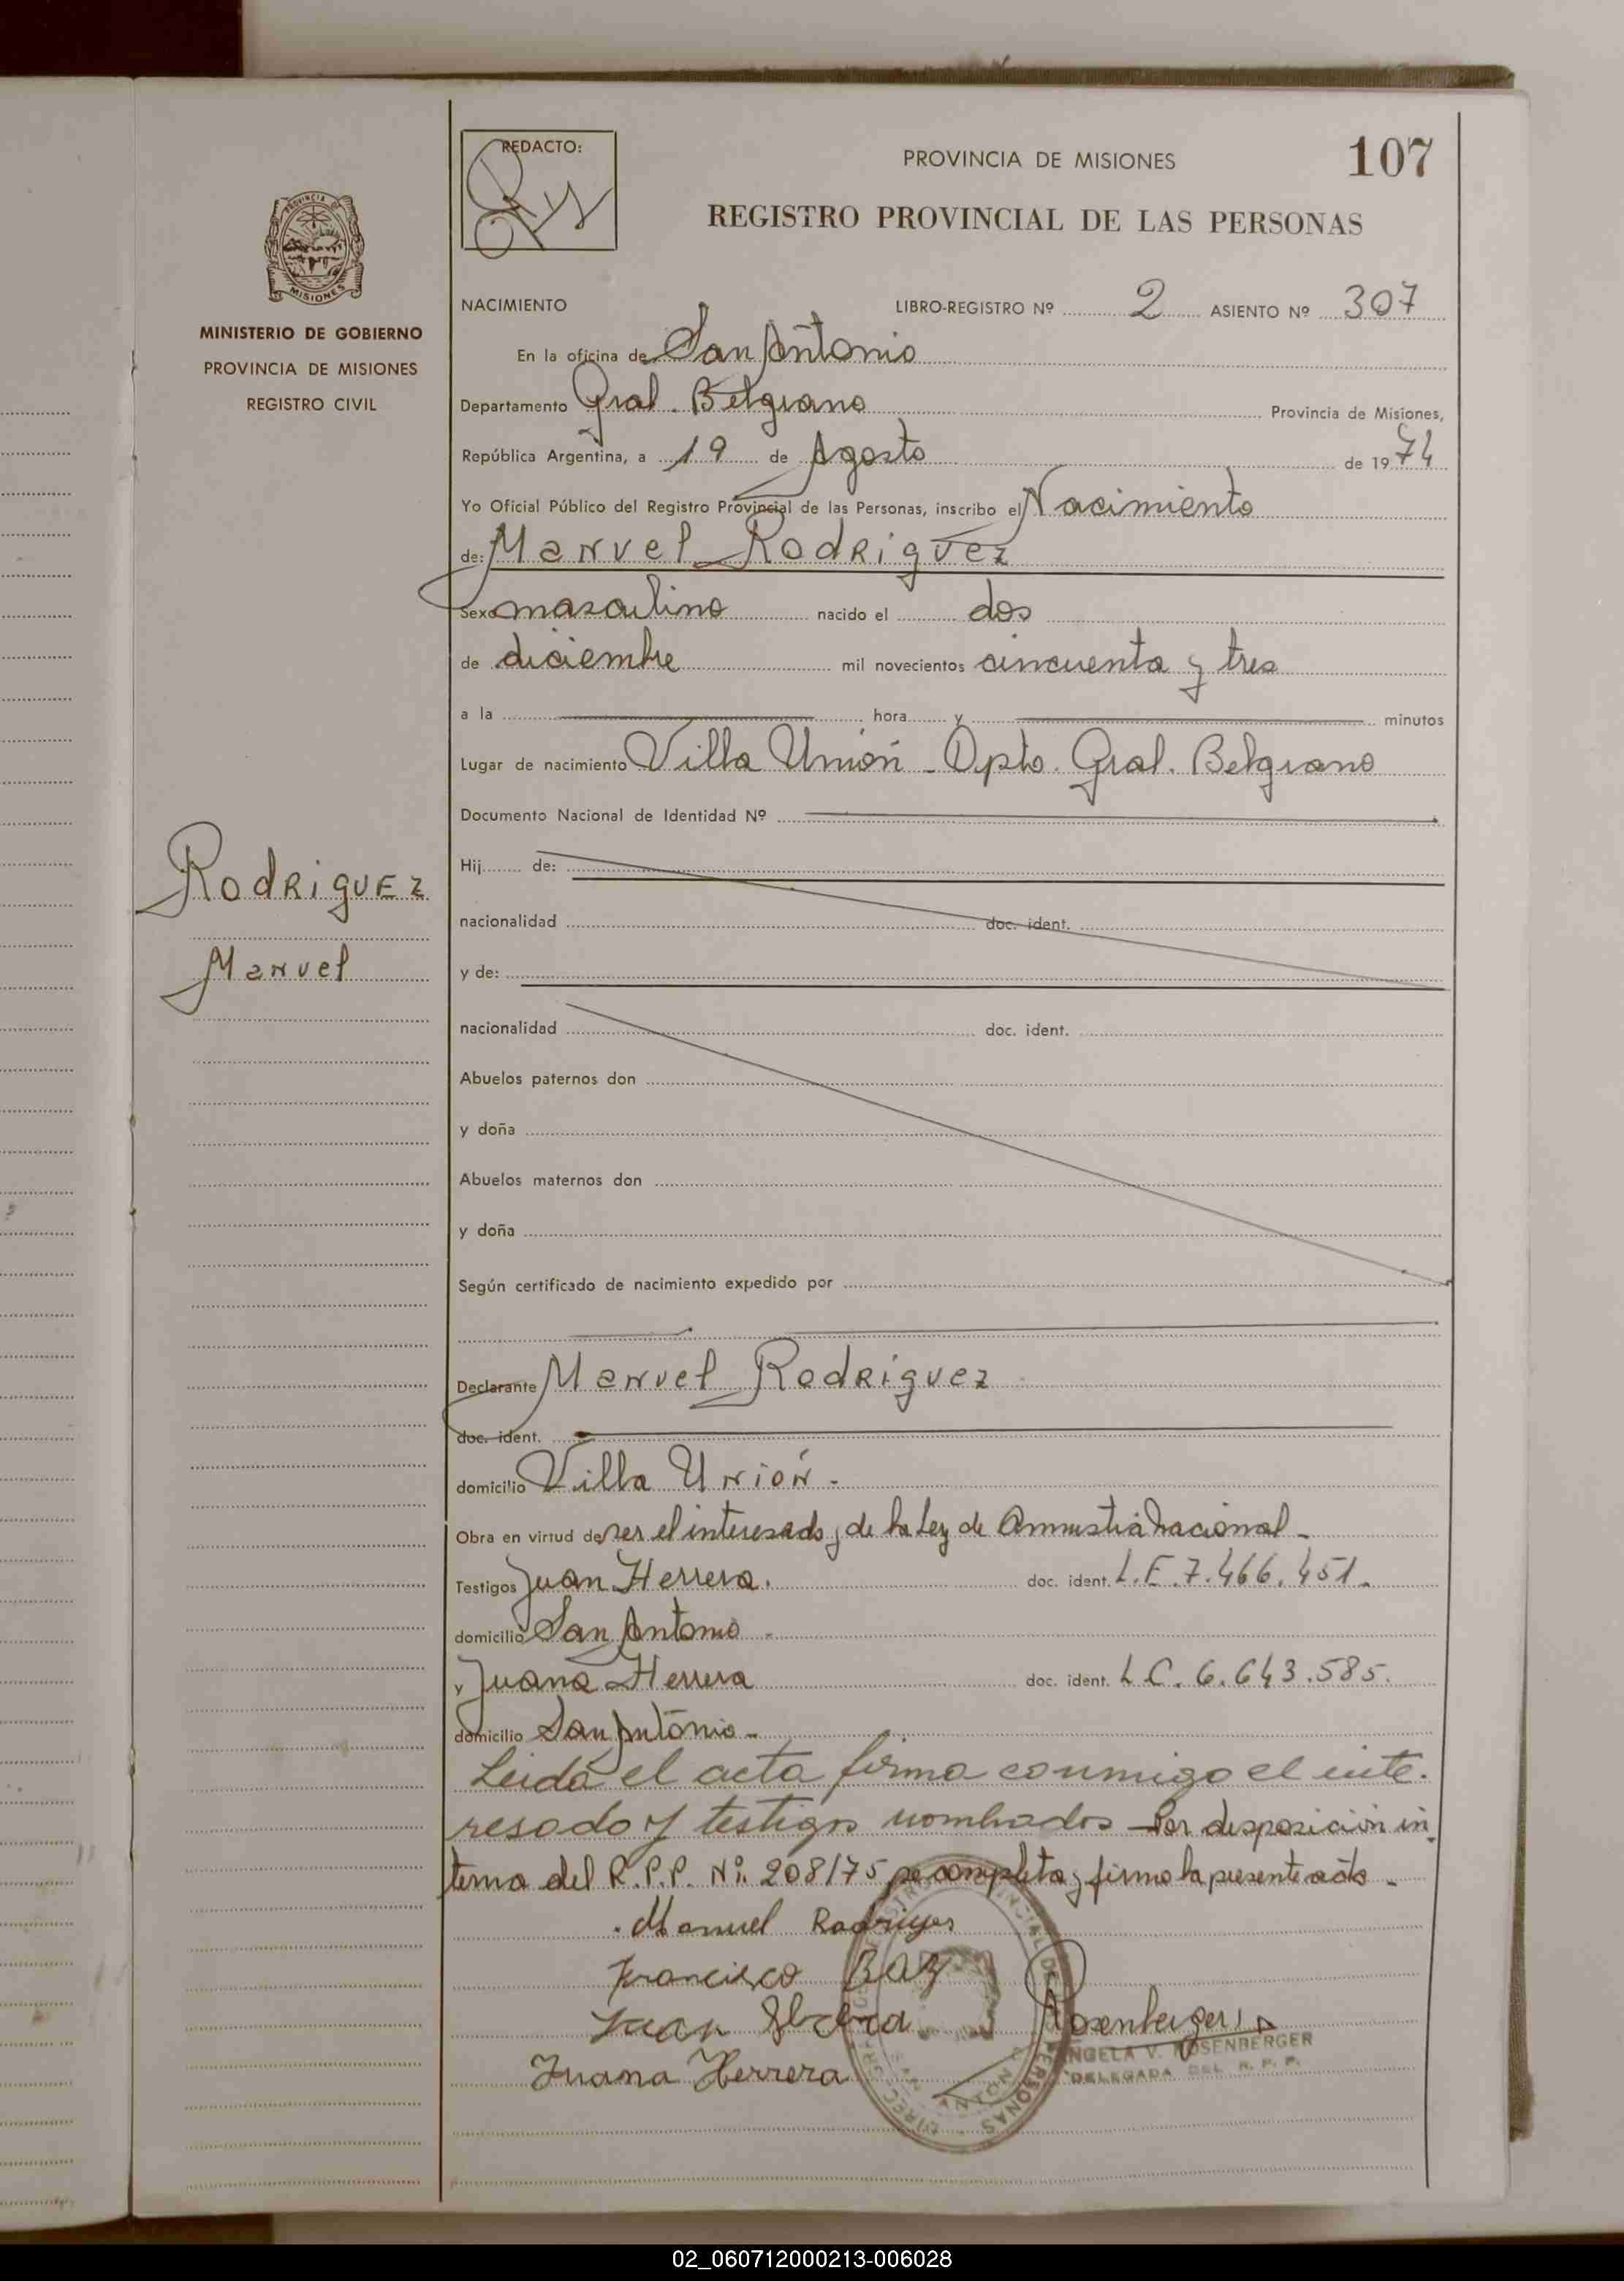 REDACTO:
PROVINCIA DE MISIONES
107
REGISTRO PROVINCIAL DE LAS PERSONAS
PROVINCIA DE
MISIONES
MINISTERIO DE GOBIERNO
PROVINCIA DE MISIONES
REGISTRO CIVIL
NACIMIENTO LIBRO-REGISTRO Nº 2 ASIENTO Nº 307
En la oficina de San Antonio
Departamento Gral. Belgrano Provincia de Misiones,
República Argentina, a 19 de Agosto de 1974
Yo Oficial Público del Registro Provincial de las Personas, inscribo el Nacimiento
de: Manuel Rodriguez
Sexo masculino nacido el dos
de diciembre mil novecientos cincuenta y tres
a la hora y minutos
Lugar de nacimiento Villa Unión - Dpto. Gral. Belgrano
Documento Nacional de Identidad Nº
Rodriguez
Manuel
Hij de:
nacionalidad doc. ident.
y de:
nacionalidad doc. ident.
Abuelos paternos don
y doña
Abuelos maternos don
y doña
Según certificado de nacimiento expedido por
Declarante Manuel Rodriguez
doc. ident.
domicilio Villa Unión -
Obra en virtud de ser el interesado y de la Ley de Amnistia nacional -
Testigos Juan Herrera. doc. ident. L.E. 7.466.451.
domicilio San Antonio -
y Juana Herrera doc. ident. L.C. 6.643.585.
domicilio San Antonio -
Leida el acta firma conmigo el inte-
resado y testigos nombrados - Por disposición in-
terna del R.P.P. Nº: 208/75 se completa y firmo la presente acta -
Manuel Rodrigues
Francisco Baz
Juan
Rosenberger
ANGELA V. ROSENBERGER
DELEGADA DEL R. P. P.
Juana Herrera
SAN ANTONIO
02_060712000213-006028